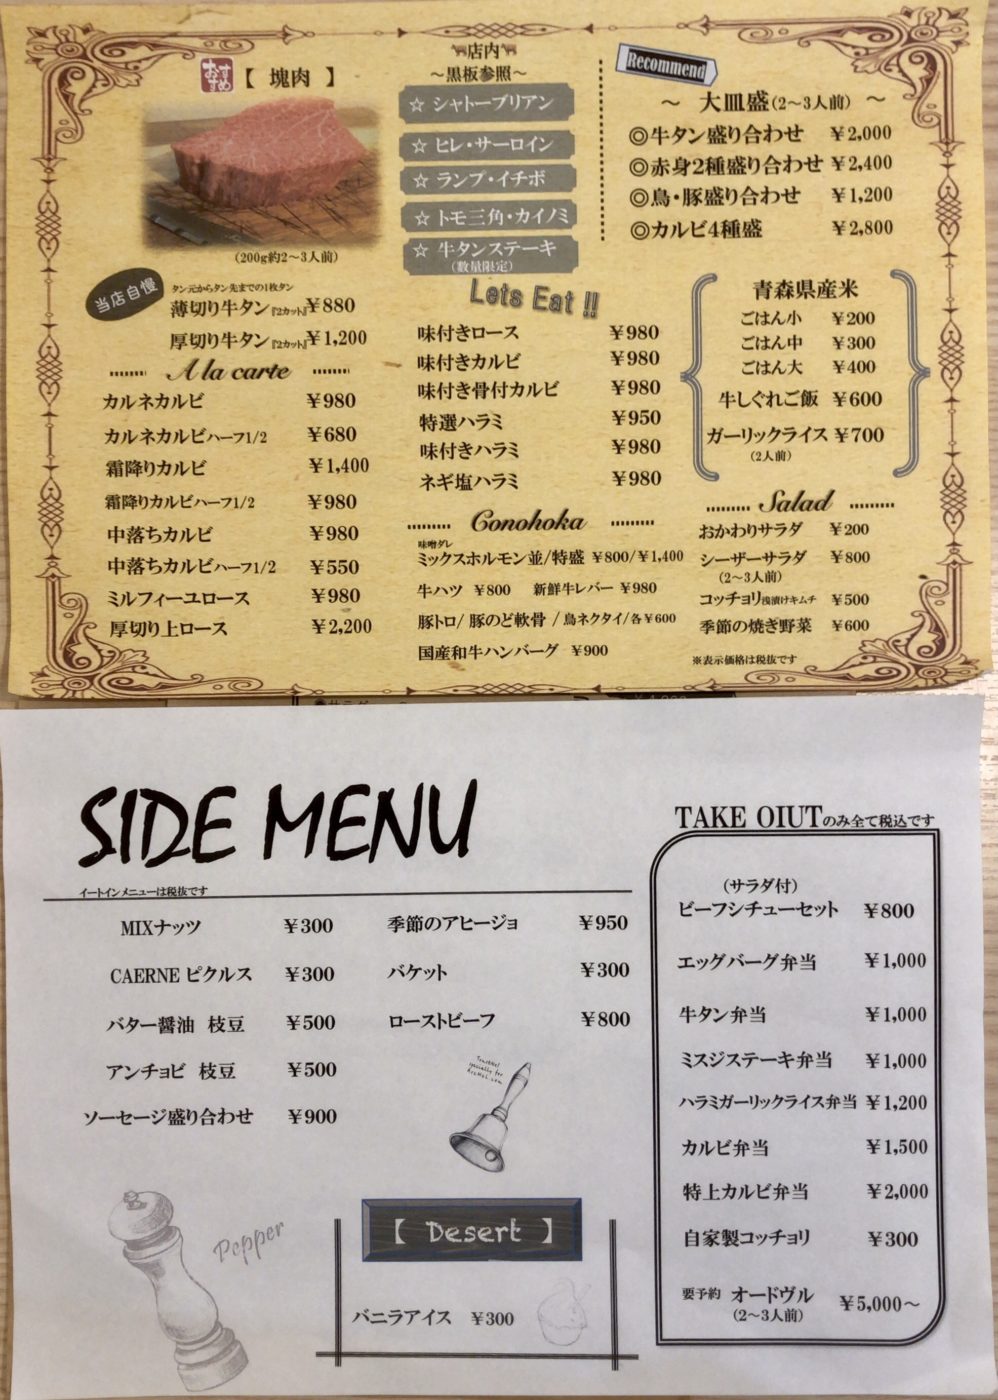 おすすめ
【 塊肉 】
(200g約2〜3人前)
店内
〜黒板参照〜
☆ シャトーブリアン
☆ ヒレ・サーロイン
☆ ランプ・イチボ
☆ トモ三角・カイノミ
☆ 牛タンステーキ
(数量限定)
Recommend
〜 大皿盛(2〜3人前) 〜
◎牛タン盛り合わせ ¥2,000
◎赤身2種盛り合わせ ¥2,400
◎鳥・豚盛り合わせ ¥1,200
◎カルビ4種盛 ¥2,800
当店自慢
タン元からタン先までの1枚タン
薄切り牛タン『2カット』¥880
厚切り牛タン『2カット』¥1,200
A la carte
カルネカルビ ¥980
カルネカルビハーフ1/2 ¥680
霜降りカルビ ¥1,400
霜降りカルビハーフ1/2 ¥980
中落ちカルビ ¥980
中落ちカルビハーフ1/2 ¥550
ミルフィーユロース ¥980
厚切り上ロース ¥2,200
Lets Eat !!
味付きロース ¥980
味付きカルビ ¥980
味付き骨付カルビ ¥980
特選ハラミ ¥950
味付きハラミ ¥980
ネギ塩ハラミ ¥980
Conohoka
味噌ダレ
ミックスホルモン並/特盛 ¥800/¥1,400
牛ハツ ¥800 新鮮牛レバー ¥980
豚トロ/ 豚のど軟骨 / 鳥ネクタイ/各¥600
国産和牛ハンバーグ ¥900
青森県産米
ごはん小 ¥200
ごはん中 ¥300
ごはん大 ¥400
牛しぐれご飯 ¥600
ガーリックライス ¥700
(2人前)
Salad
おかわりサラダ ¥200
シーザーサラダ ¥800
(2〜3人前)
コッチョリ浅漬けキムチ ¥500
季節の焼き野菜 ¥600
※表示価格は税抜です
SIDE MENU
イートインメニューは税抜です
MIXナッツ ¥300
CAERNE ピクルス ¥300
バター醤油 枝豆 ¥500
アンチョビ 枝豆 ¥500
ソーセージ盛り合わせ ¥900
季節のアヒージョ ¥950
バケット ¥300
ローストビーフ ¥800
Pepper
【 Desert 】
バニラアイス ¥300
TAKE OIUTのみ全て税込です
(サラダ付)
ビーフシチューセット ¥800
エッグバーグ弁当 ¥1,000
牛タン弁当 ¥1,000
ミスジステーキ弁当 ¥1,000
ハラミガーリックライス弁当 ¥1,200
カルビ弁当 ¥1,500
特上カルビ弁当 ¥2,000
自家製コッチョリ ¥300
要予約 オードヴル ¥5,000〜
(2〜3人前)